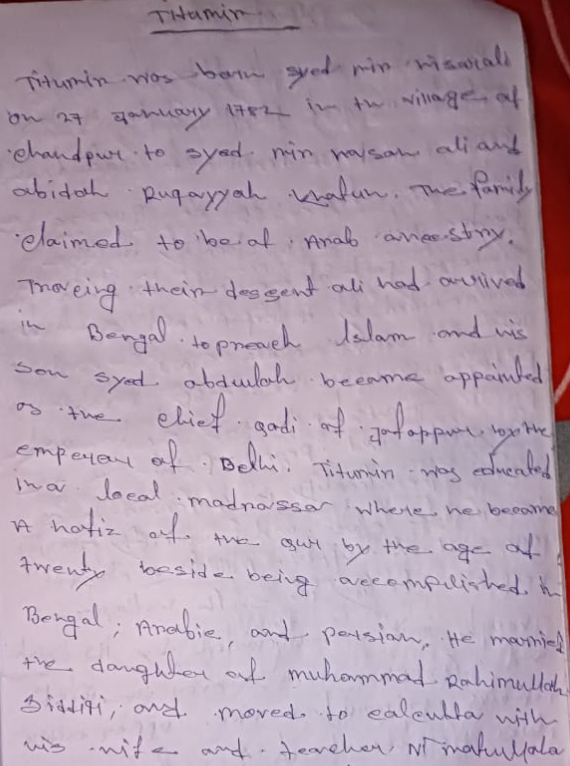 Titumir
Titumir was born syed mir nisarali
on 27 January 1782 in the village of
chandpur to syed mir hassan ali and
abidah Ruqayyah Khatun. The family
claimed to be of Arab ancestry.
their dessent ali had arrived
in Bengal to preach Islam and his
son syed abdullah became appointed
as the chief qadi of by the
emperor of Delhi. Titumir was educated
in a local madrassa where he became
A hafiz of the qur by the age of
twenty beside being accomplished in
Bengal, Arabic, and persian, He married
the daughter of muhammad Rahimullah
Siddiqi, and moved to calcutta with
his wife and teacher